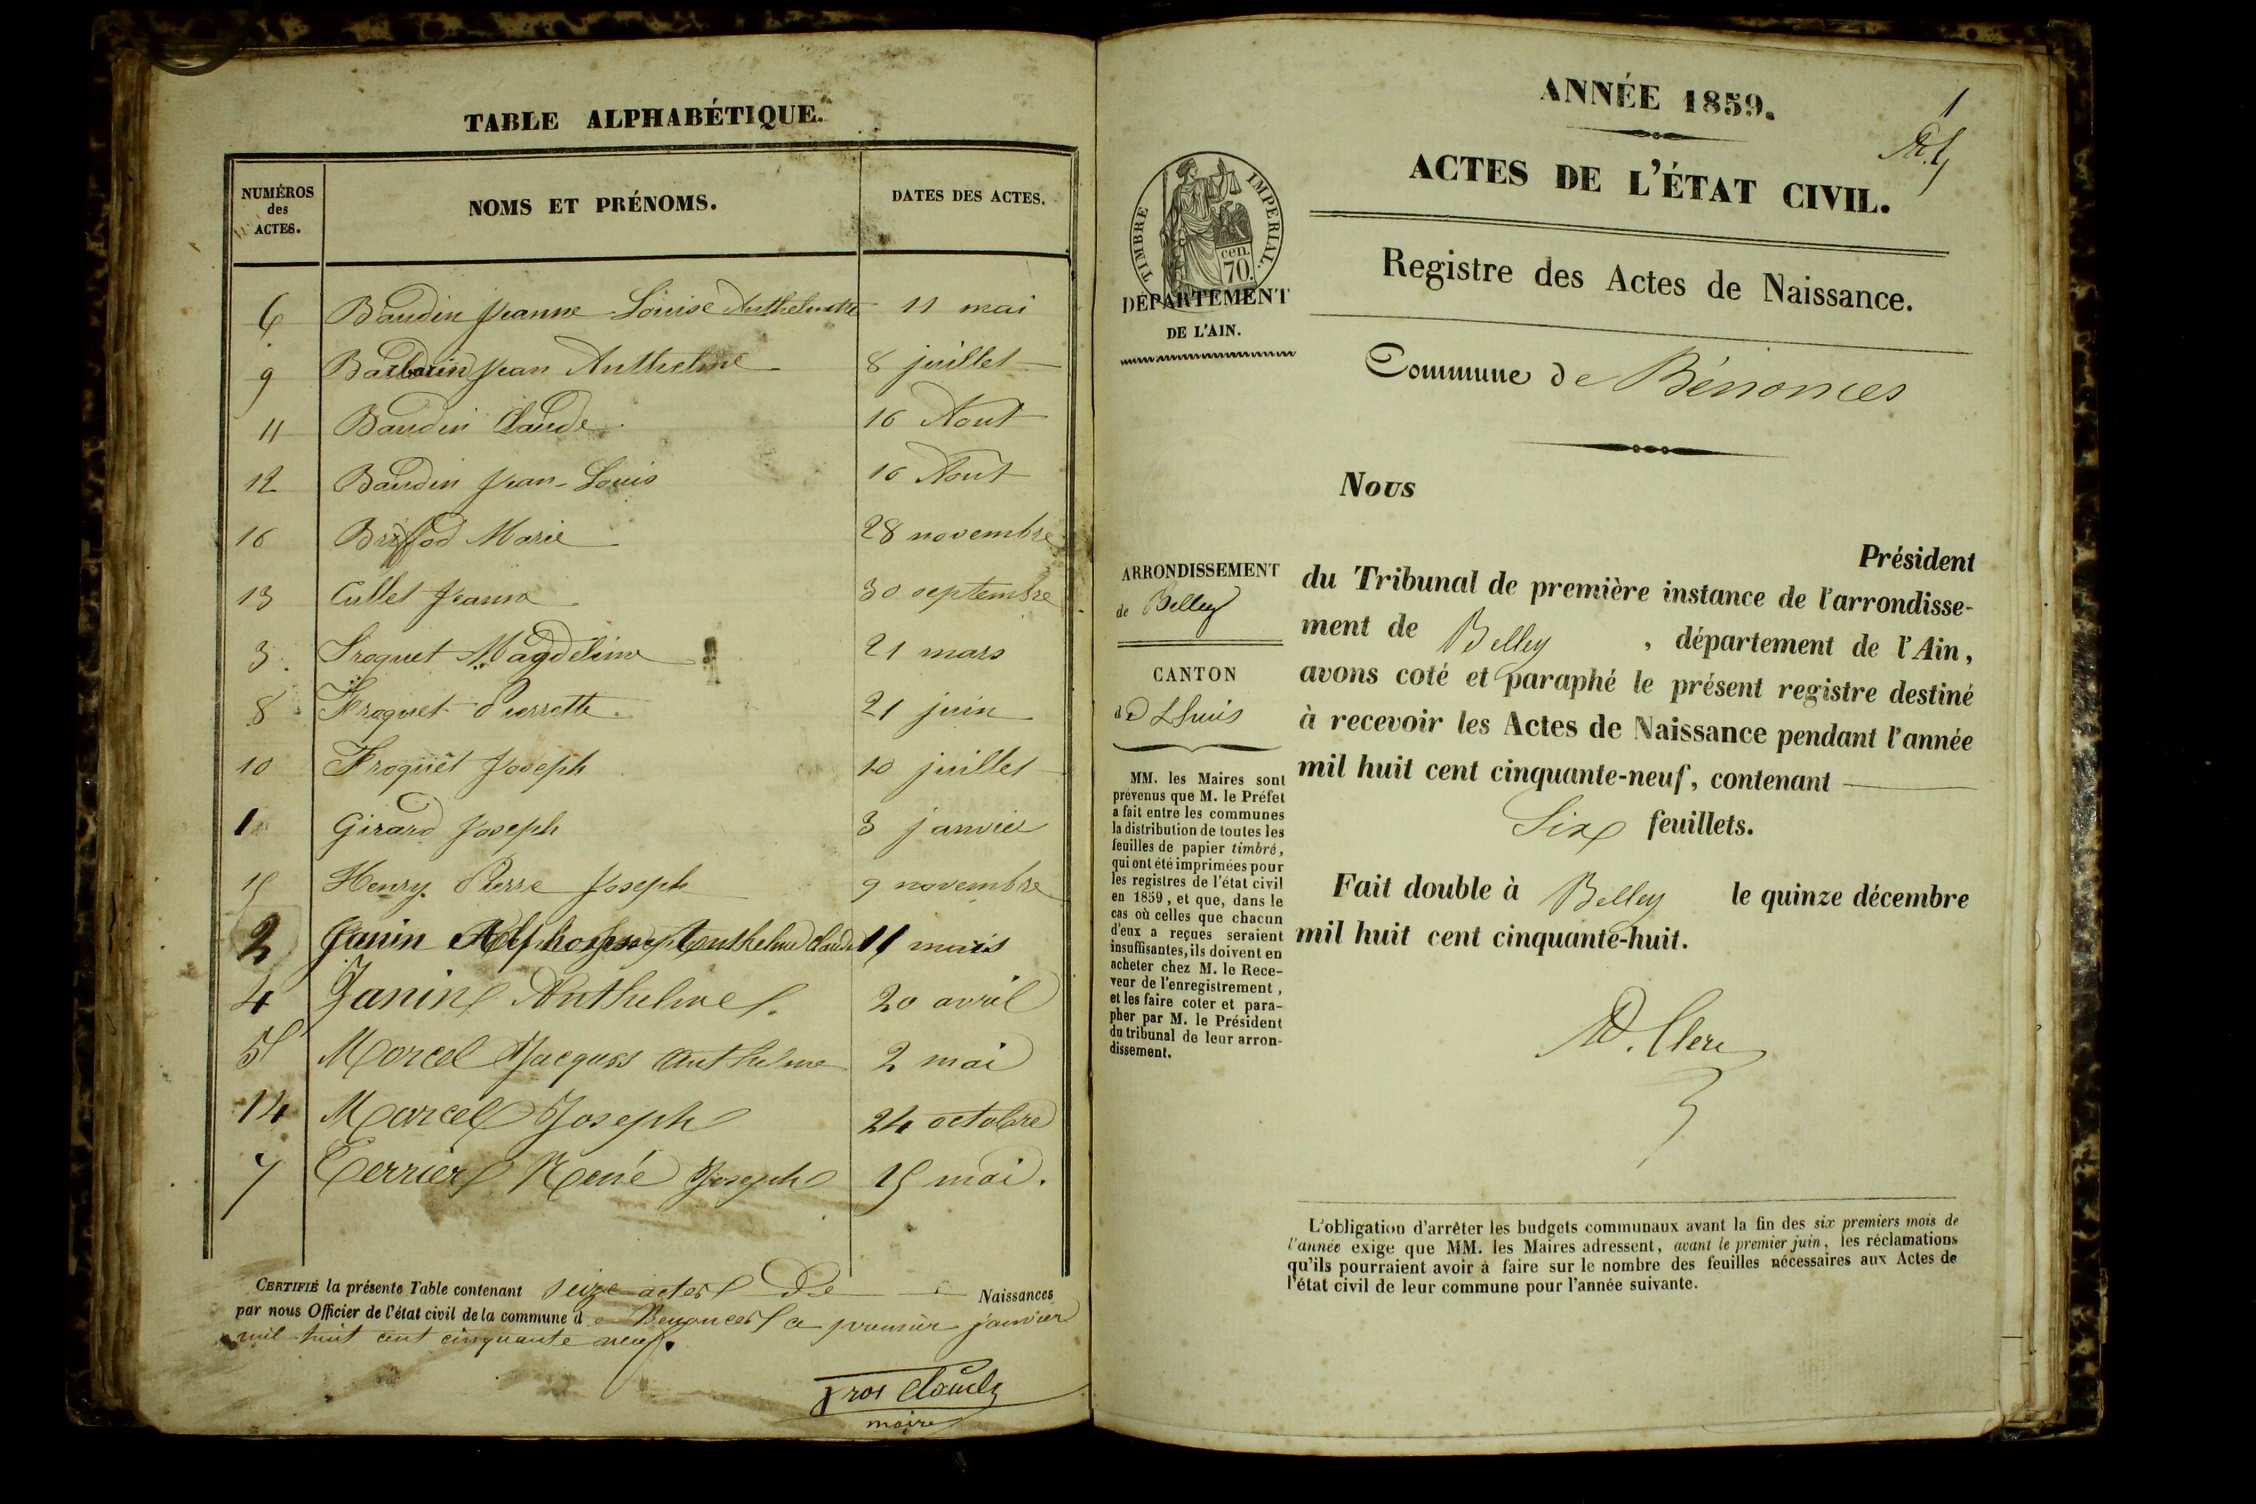 TABLE ALPHABÉTIQUE.
NUMÉROS des ACTES. NOMS ET PRÉNOMS. DATES DES ACTES.
6 Baudin Jeanne Louise Anthelmette 11 mai
9 Barbarin Jean Anthelme 8 juillet
11 Baudin Claude 16 Aout
12 Baudin Jean-Louis 16 Aout
16 Briffod Marie 28 novembre
13 Cullet Jeanne 30 septembre
3 Froquet Magdeleine 21 mars
8 Froquet Pierrette 21 juin
10 Froquet Joseph 10 juillet
1 Girard Joseph 3 janvier
15 Henry Pierre Joseph 9 novembre
2 Janin Alphonse Anthelme Claude 11 mars
4 Janin Anthelme 20 avril
5 Marcel Jacques Anthelme 2 mai
14 Marcel Joseph 24 octobre
7 Terrier René Joseph 15 mai.
CERTIFIÉ la présente Table contenant seize actes de Naissances
par nous Officier de l'état civil de la commune de Benonces ce premier janvier
mil huit cent cinquante neuf.
maire
1
ANNÉE 1859.
ACTES DE L'ÉTAT CIVIL.
TIMBRE IMPERIAL.
cen. 70.
DÉPARTEMENT
DE L'AIN.
Registre des Actes de Naissance.
Commune de Bénonces
Nous
Président
du Tribunal de première instance de l'arrondisse-
ment de Belley, département de l'Ain,
avons coté et paraphé le présent registre destiné
à recevoir les Actes de Naissance pendant l'année
mil huit cent cinquante-neuf, contenant
Six feuillets.
Fait double à Belley le quinze décembre
mil huit cent cinquante-huit.
D. Clerc
ARRONDISSEMENT
de Belley
CANTON
de Lhuis
MM. les Maires sont
prévenus que M. le Préfet
a fait entre les communes
la distribution de toutes les
feuilles de papier timbré,
qui ont été imprimées pour
les registres de l'état civil
en 1859, et que, dans le
cas où celles que chacun
d'eux a reçues seraient
insuffisantes, ils doivent en
acheter chez M. le Rece-
veur de l'enregistrement,
et les faire coter et para-
pher par M. le Président
du tribunal de leur arron-
dissement.
L'obligation d'arrêter les budgets communaux avant la fin des six premiers mois de
l'année exige que MM. les Maires adressent, avant le premier juin, les réclamations
qu'ils pourraient avoir à faire sur le nombre des feuilles nécessaires aux Actes de
l'état civil de leur commune pour l'année suivante.